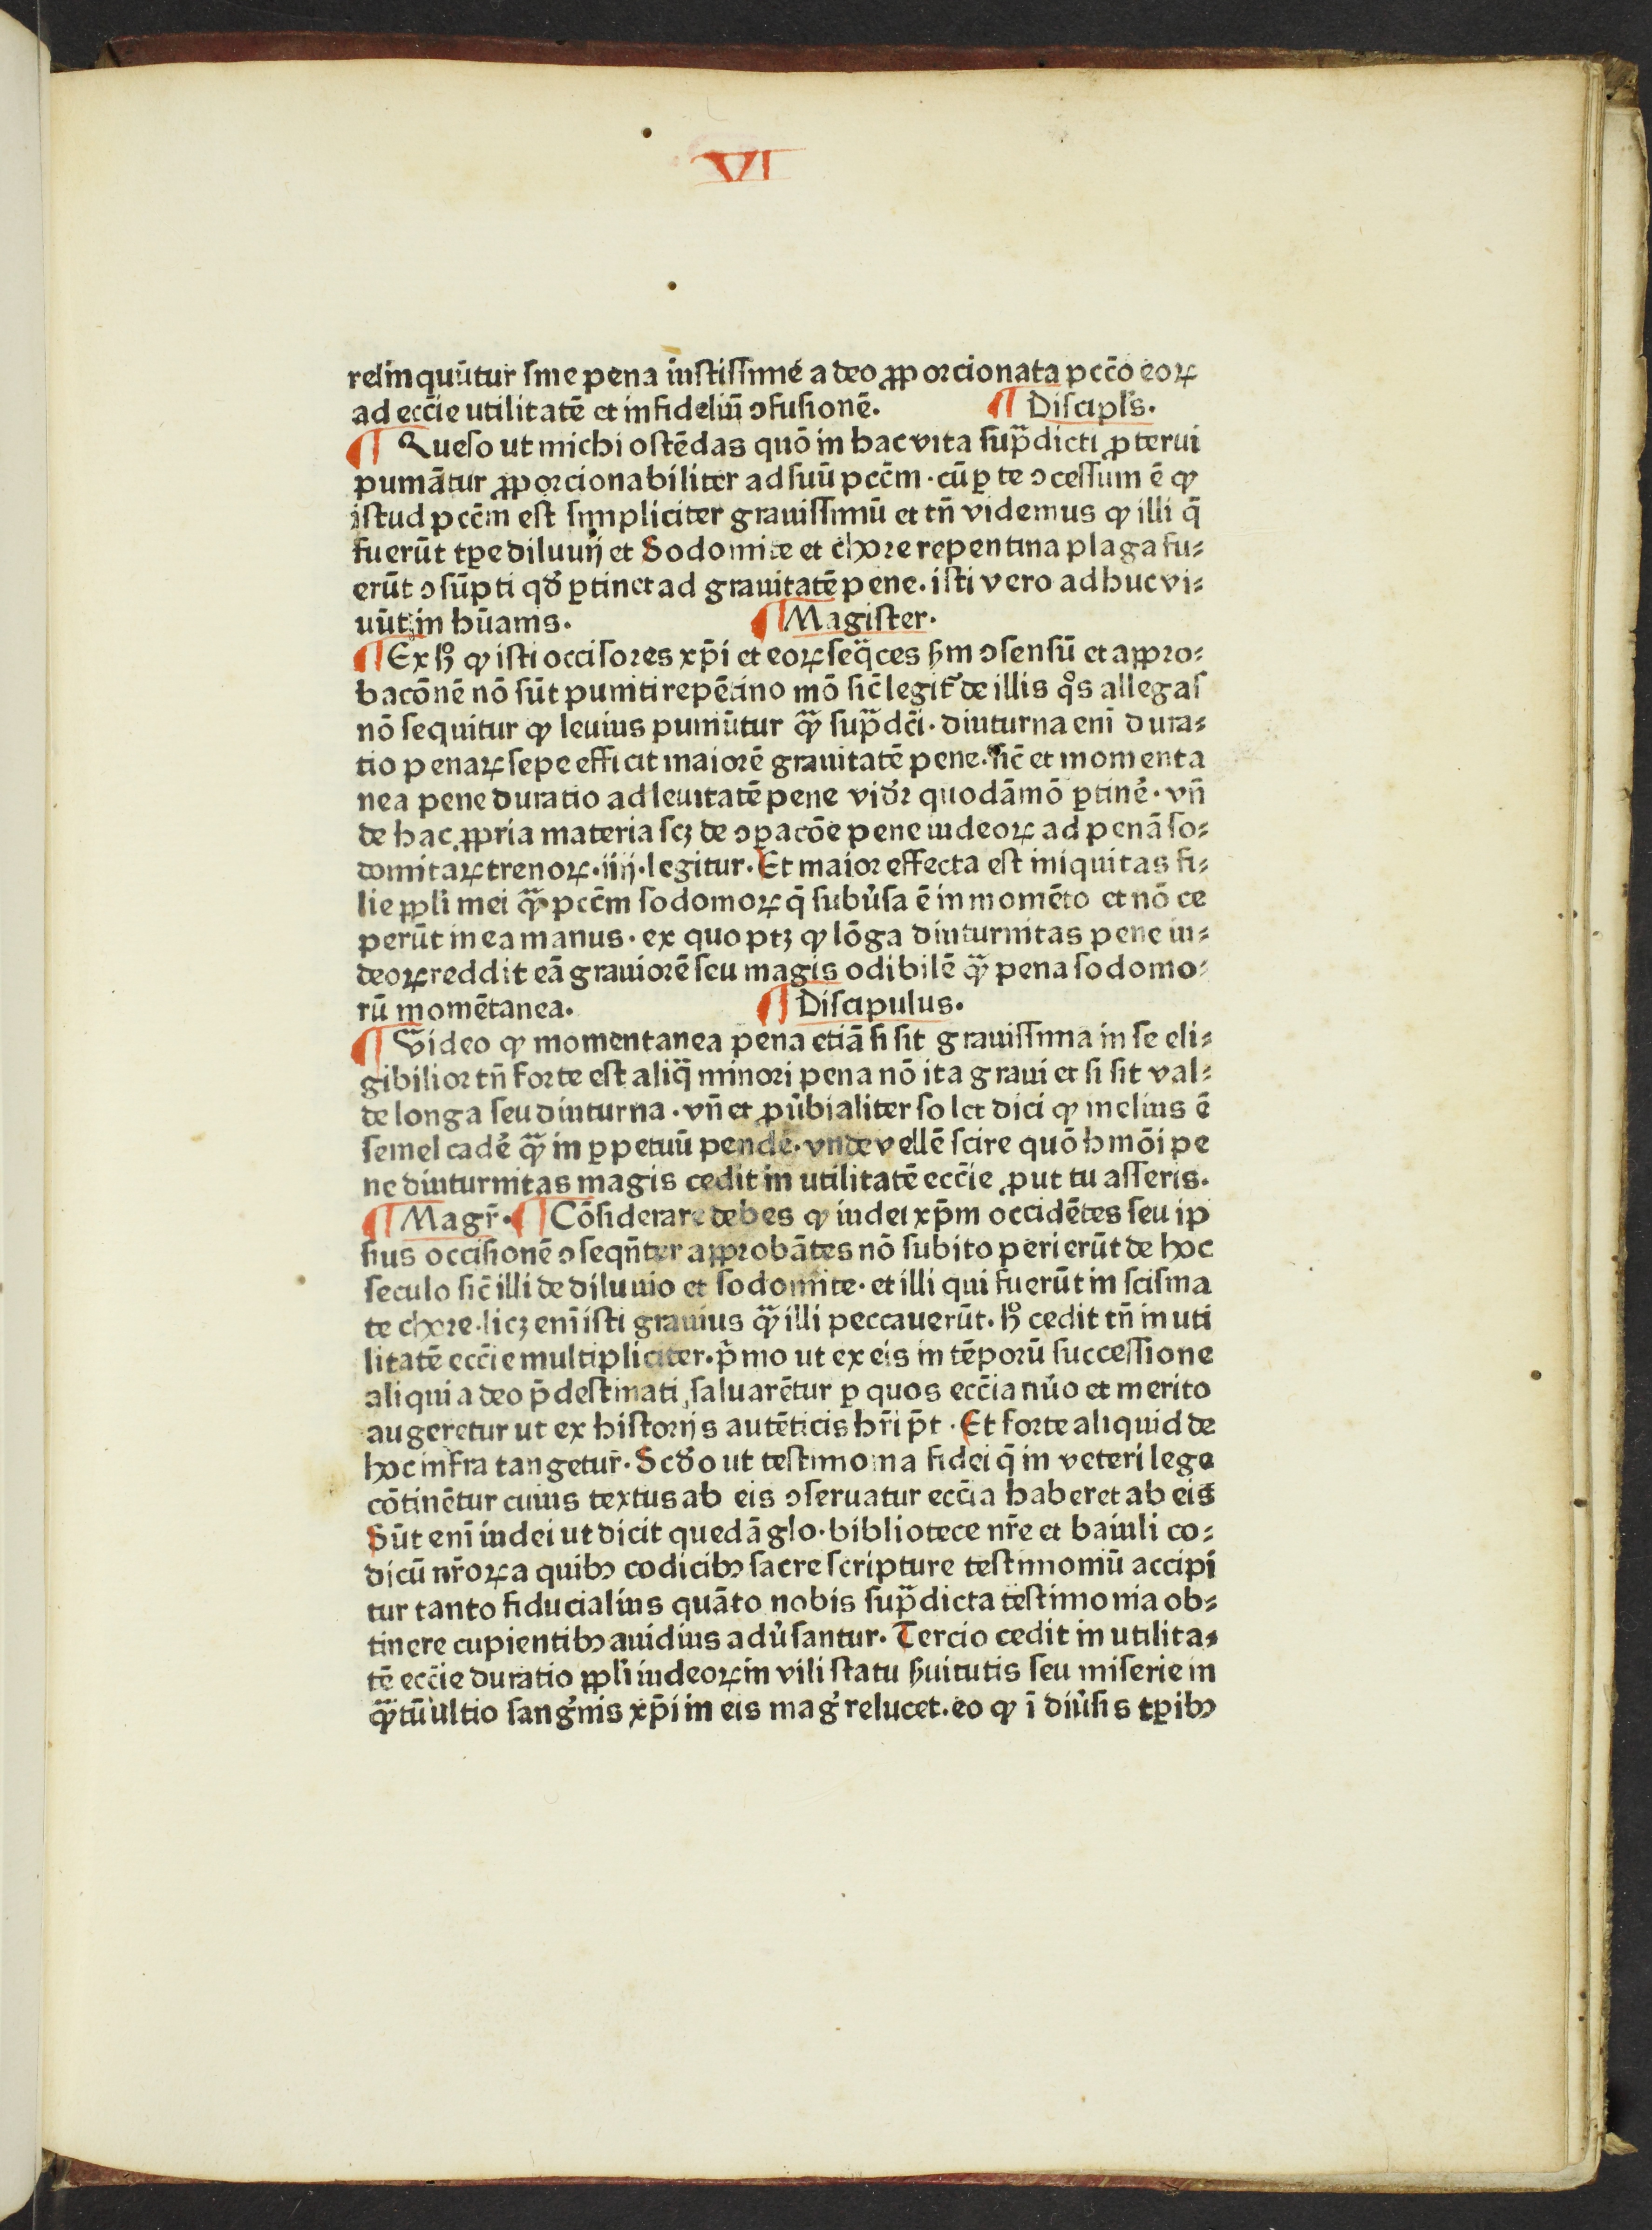 VI
relinquūtur sine pena iustissime a deo ꝓporcionata pcc̄o eoꝝ
ad ecc̄ie utilitatē et infideliū ↄfusionē. ¶ Discipl's.
¶ Queso ut michi ostēdas quō in hac vita sup̄dicti ꝓterui
puniātur ꝓporcionabiliter ad suū pcc̄m · cū ꝑ te ↄcessum ē ꝙ
istud pcc̄m est simpliciter grauissimū et tn̄ videmus ꝙ illi q̄
fuerūt tꝑe diluuij et Sodomite et chore repentina plaga fu⸗
erūt ↄsūpti qd̛ ꝑtinet ad grauitatē pene. isti vero adhuc vi⸗
uūt in hūanis. ¶ Magister.
¶ Ex h̛ ꝙ isti occisores xp̄i et eoꝝ seq̄ces ẜm ↄsensū et appro⸗
bacōnē nō sūt puniti repētino mō sic̄ legit̛ de illis q̊s allegas
nō sequitur ꝙ leuius puniūtur q̄ꝫ sup̄dc̄i. diuturna eni̅ dura⸗
tio penaꝝ sepe efficit maiorē grauitatē pene. sic̄ et momenta
nea pene duratio ad leuitatē pene vid̛r quodāmō ꝑtine̛. vn̄
de hac ꝓpria materia scꝫ de ↄꝑacōe pene iudeoꝝ ad penā so⸗
domitaꝝ trenoꝝ. iiij. legitur. Et maior effecta est iniquitas fi⸗
lie ppl̛i mei q̄ꝫ pcc̄m sodomoꝝ q̄ subưsa ē in momēto et nō ce
perūt in ea manus. ex quo ptꝫ ꝙ lōga diuturnitas pene iu⸗
deoꝝ reddit eā grauiorē seu magis odibilē q̄ꝫ pena sodomo⸗
rū momētanea. ¶ Discipulus.
¶ Video ꝙ momentanea pena etiā si sit grauissima in se eli⸗
gibilior tn̄ forte est aliq̄ minori pena nō ita graui et si sit val⸗
de longa seu diuturna. vn̄ et ꝓưbialiter solet dici ꝙ melius ē
semel cade̛ q̄ꝫ in ꝑpetuū pende̛. vnde vellē scire quō hmōi pe
ne diuturnitas magis cedit in utilitatē ecc̄ie ꝓut tu asseris.
¶ Magr̄. ¶ Cōsiderare debes ꝙ iudei xp̄m occidētes seu ip
sius occisionē ↄseqn̄ter approbātes nō subito perierūt de hoc
seculo sic̄ illi de diluuio et sodomite. et illi qui fuerūt in scisma
te chore. licꝫ eni̅ isti grauius q̄ꝫ illi peccauerūt. h̛ cedit tn̄ in uti
litatē ecc̄ie multipliciter. p̄mo ut ex eis in tēporū successione
aliqui a deo p̄destinati saluarētur ꝑ quos ecc̄ia nưo et merito
augeretur ut ex historijs autēticis hr̄i p̄t. Et forte aliquid de
hoc infra tangetur̄. Scd̛o ut testimonia fidei q̄ in veteri lege
cōtinētur cuius textus ab eis ↄseruatur ecc̄ia haberet ab eis
Sūt eni̅ iudei ut dicit quedā glo. bibliotece nr̄e et baiuli co⸗
dicū nr̄oꝝ a quibꝰ codicibꝰ sacre scripture testimoniū accipi
tur tanto fiducialius quāto nobis sup̄dicta testimonia ob⸗
tinere cupientibꝰ auidius adưsantur. Tercio cedit in utilita⸗
tē ecc̄ie duratio ppl̛i iudeoꝝ in vili statu ẜuitutis seu miserie in
q̄ꝫtū ultio sang̛nis xp̄i in eis mag̛ relucet. eo ꝙ ī diưsis tꝑibꝰ